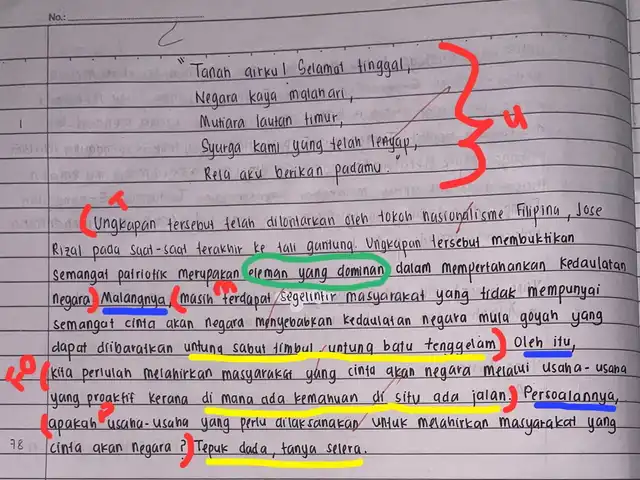 No.:
"Tanah airku! Selamat tinggal,
Negara kaya matahari,
1
Mutiara lautan timur,
Syurga kami yang telah lenyap,
Rela aku berikan padamu."
U
T
(Ungkapan tersebut telah dilontarkan oleh tokoh nasionalisme Filipina, Jose
Rizal pada saat-saat terakhir ke tali gantung. Ungkapan tersebut membuktikan
semangat patriotik merupakan eleman yang dominan dalam mempertahankan kedaulatan
negara) Malangnya, (masih terdapat segelintir masyarakat yang tidak mempunyai
semangat cinta akan negara menyebabkan kedaulatan negara mula goyah yang
dapat diibaratkan untung sabut timbul, untung batu tenggelam) Oleh itu,
(kita perlulah melahirkan masyarakat yang cinta akan negara melalui usaha-usaha
yang proaktif kerana di mana ada kemahuan di situ ada jalan) Persoalannya,
(apakah usaha-usaha yang perlu dilaksanakan untuk melahirkan masyarakat yang
78
cinta akan negara?) Tepuk dada, tanya selera.